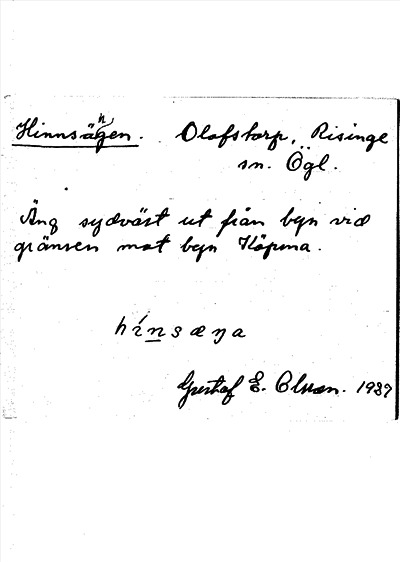 Hinnsängen. Olofstorp, Risinge
sn. Ögl.
Äng sydväst ut från byn vid
gränsen mot byn Köpma.
hínsæŋa
Gustaf E. Olson. 1937